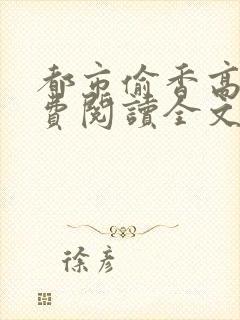 都市偷香高
費閱讀全文
徐彦